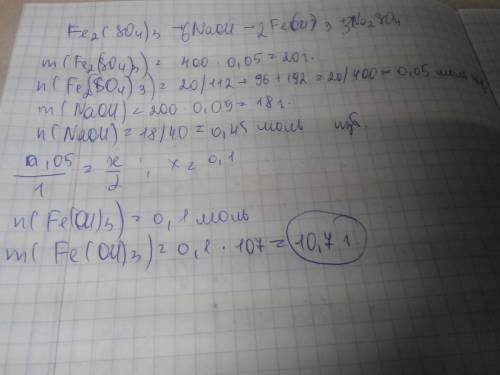 Fe₂(SO₄)₃ - 6NaOH - 2Fe(OH)₃ 3Na₂SO₄
m(Fe₂(SO₄)₃) = 400 · 0,05 = 20 г.
n(Fe₂(SO₄)₃) = 20/112 + 96 + 192 = 20/400 = 0,05 моль
m(NaOH) = 200 · 0,09 = 18 г.
n(NaOH) = 18/40 = 0,45 моль изб.
0,05/1 = x/2 ; x = 0,1
n(Fe(OH)₃) = 0,1 моль
m(Fe(OH)₃) = 0,1 · 107 = 10,7 г